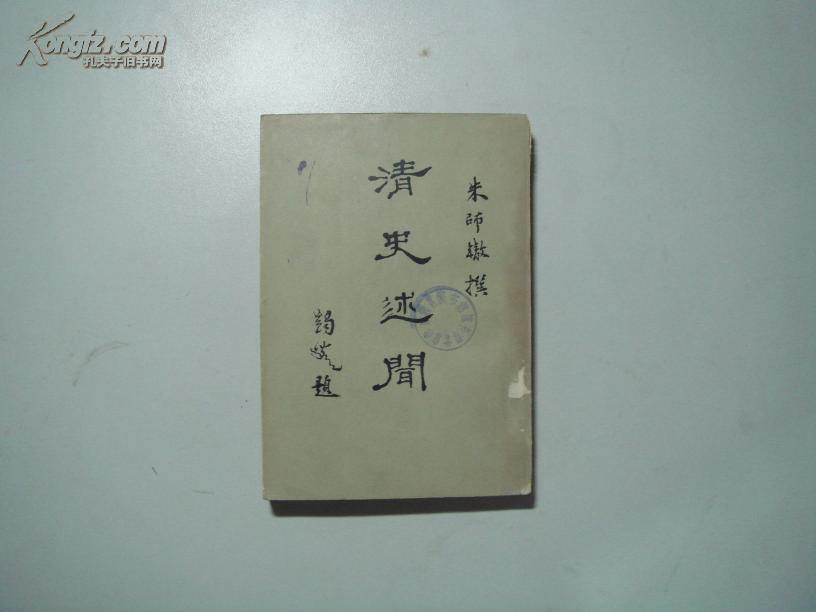 Kongfz.com
孔夫子旧书网
朱師轍撰
清史述聞
題